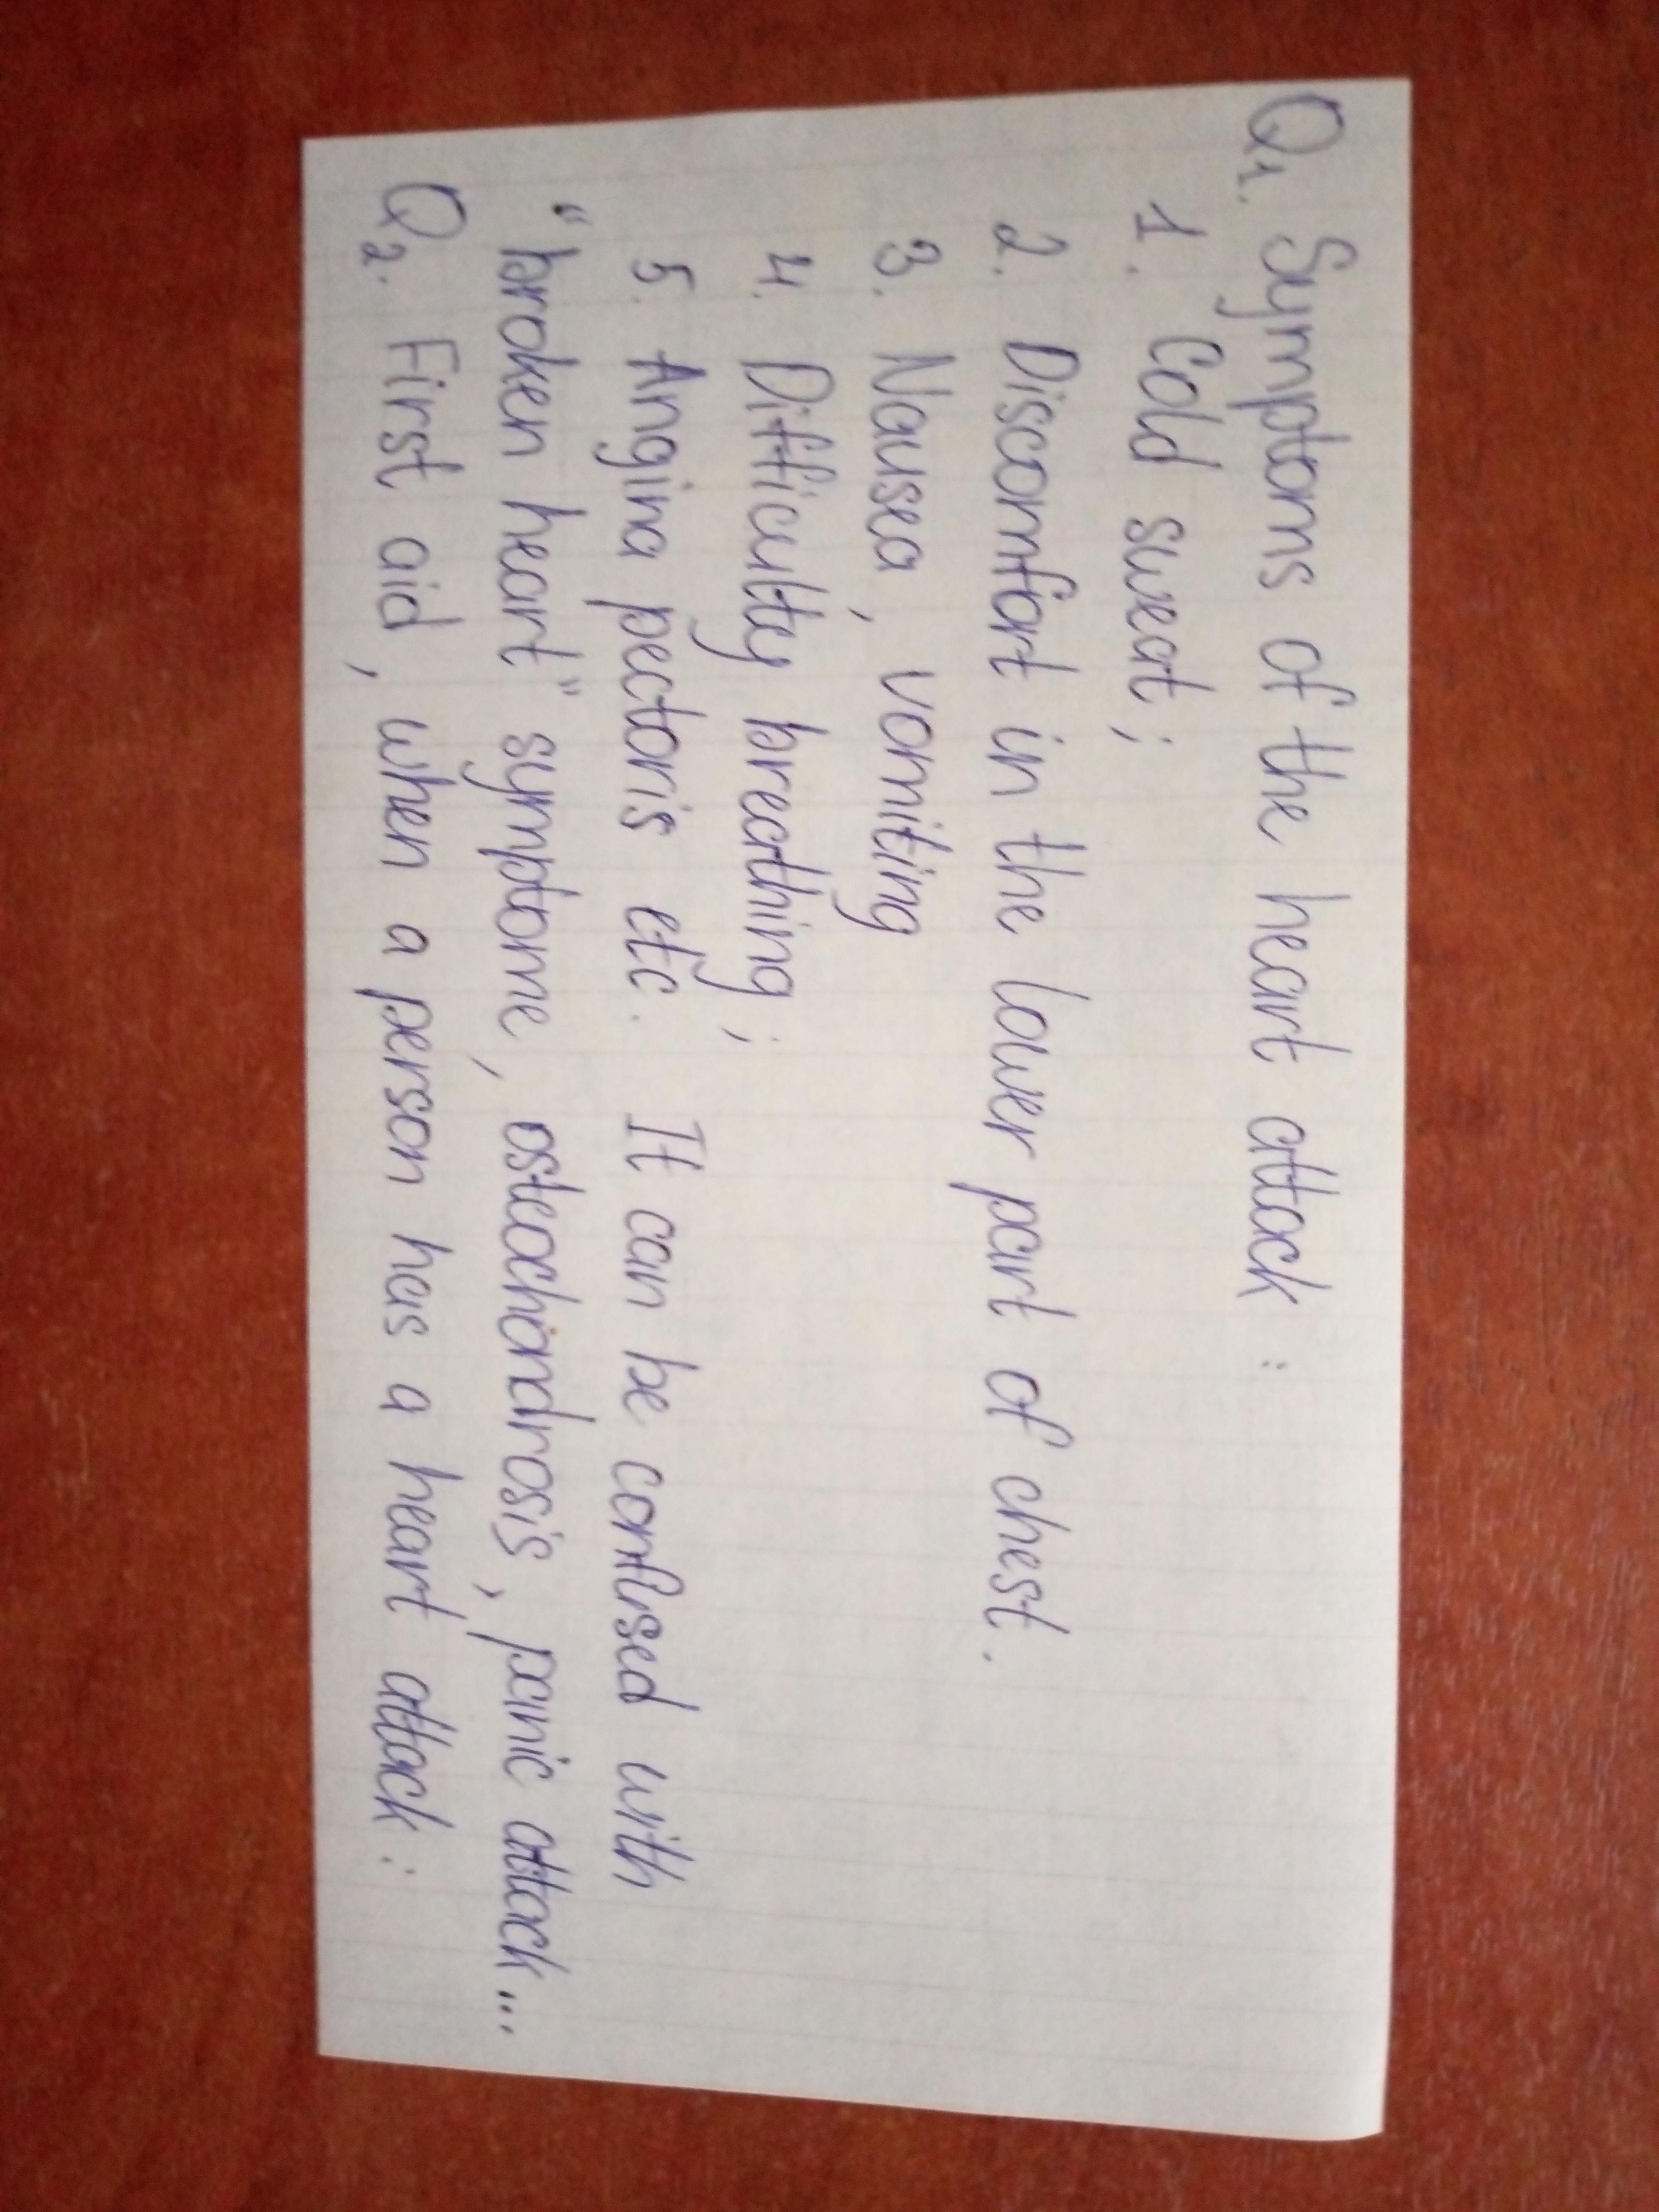 Q1. Symptoms of the heart attack :
1. Cold sweat ;
2. Discomfort in the lower part of chest.
3. Nausea, vomiting
4. Difficulty breathing ;
5. Angina pectoris etc. It can be confused with
"broken heart" symptome, osteochondrosis, panic attack...
Q2. First aid, when a person has a heart attack :